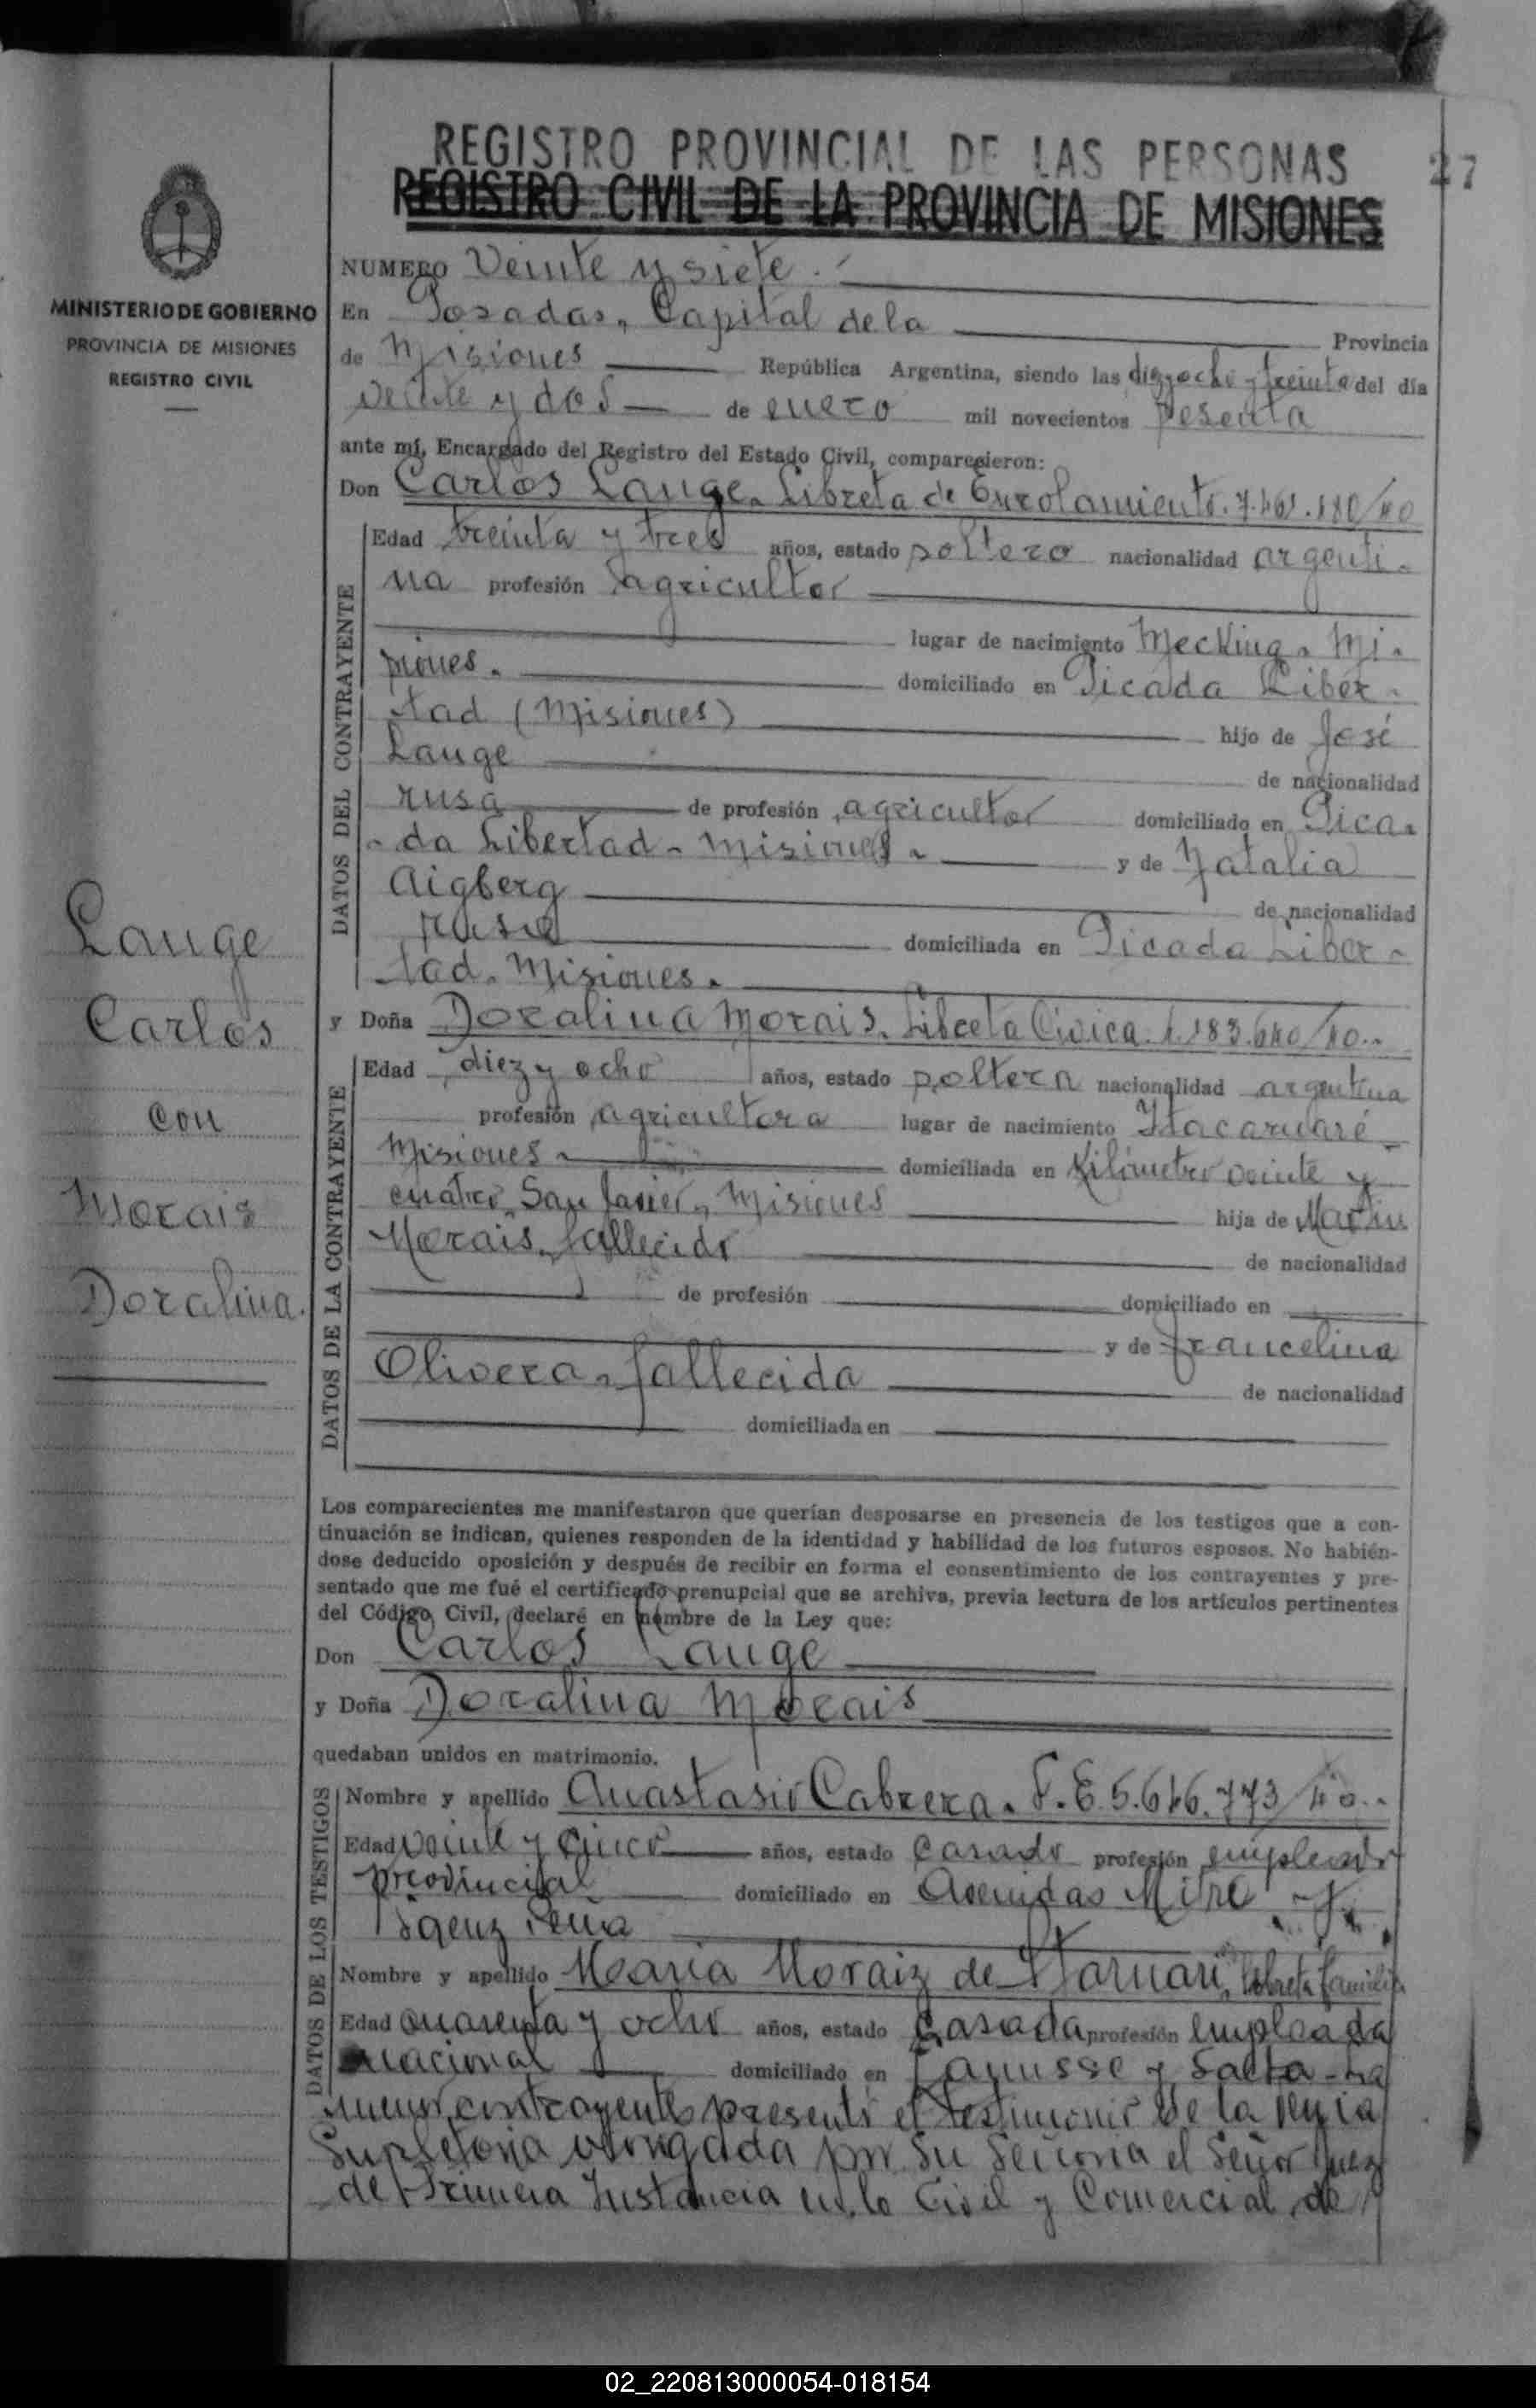 REGISTRO PROVINCIAL DE LAS PERSONAS
27
REGISTRO CIVIL DE LA PROVINCIA DE MISIONES
MINISTERIO DE GOBIERNO
PROVINCIA DE MISIONES
REGISTRO CIVIL
NUMERO Veinte y siete.
En Posadas, Capital de la Provincia
de Misiones República Argentina, siendo las diez y ocho y treinta del día
veinte y dos de enero mil novecientos sesenta
ante mí, Encargado del Registro del Estado Civil, comparecieron:
Don Carlos Lange. Libreta de Enrolamiento.
DATOS DEL CONTRAYENTE
Edad treinta y tres años, estado soltero nacionalidad argenti-
na profesión agricultor
lugar de nacimiento Mecking. Mi-
siones. domiciliado en Picada Liber-
tad (Misiones) hijo de José
Lange de nacionalidad
rusa de profesión agricultor domiciliado en Pica-
da Libertad - Misiones - y de Natalia
Aigberg de nacionalidad
rusa domiciliada en Picada Liber-
tad. Misiones.
Lange
Carlos
con
Morais
Doralina.
y Doña Doralina Morais. Libreta Cívica.
DATOS DE LA CONTRAYENTE
Edad diez y ocho años, estado soltera nacionalidad argentina
profesión agricultora lugar de nacimiento Itacaruaré
Misiones - domiciliada en Kilómetro veinte y
cuatro, San Javier, Misiones hija de
Morais, fallecido de nacionalidad
de profesión domiciliado en
y de Francelina
Olivera, fallecida de nacionalidad
domiciliada en
Los comparecientes me manifestaron que querían desposarse en presencia de los testigos que a con-
tinuación se indican, quienes responden de la identidad y habilidad de los futuros esposos. No habién-
dose deducido oposición y después de recibir en forma el consentimiento de los contrayentes y pre-
sentado que me fué el certificado prenupcial que se archiva, previa lectura de los artículos pertinentes
del Código Civil, declaré en nombre de la Ley que:
Don Carlos Lange
y Doña Doralina Morais
quedaban unidos en matrimonio.
DATOS DE LOS TESTIGOS
Nombre y apellido Anastasio Cabrera.
Edad veinte y cinco años, estado casado profesión empleado
provincial domiciliado en Avenidas Mitre y
Saenz Peña
Nombre y apellido María Moraiz de
Edad cuarenta y ocho años, estado casada profesión empleada
nacional domiciliado en Lanusse y Salta - La
menor contrayente presentó el testimonio de la venia
supletoria otorgada por Su Señoría el Señor Juez
de Primera Instancia en lo Civil y Comercial de
02_220813000054-018154